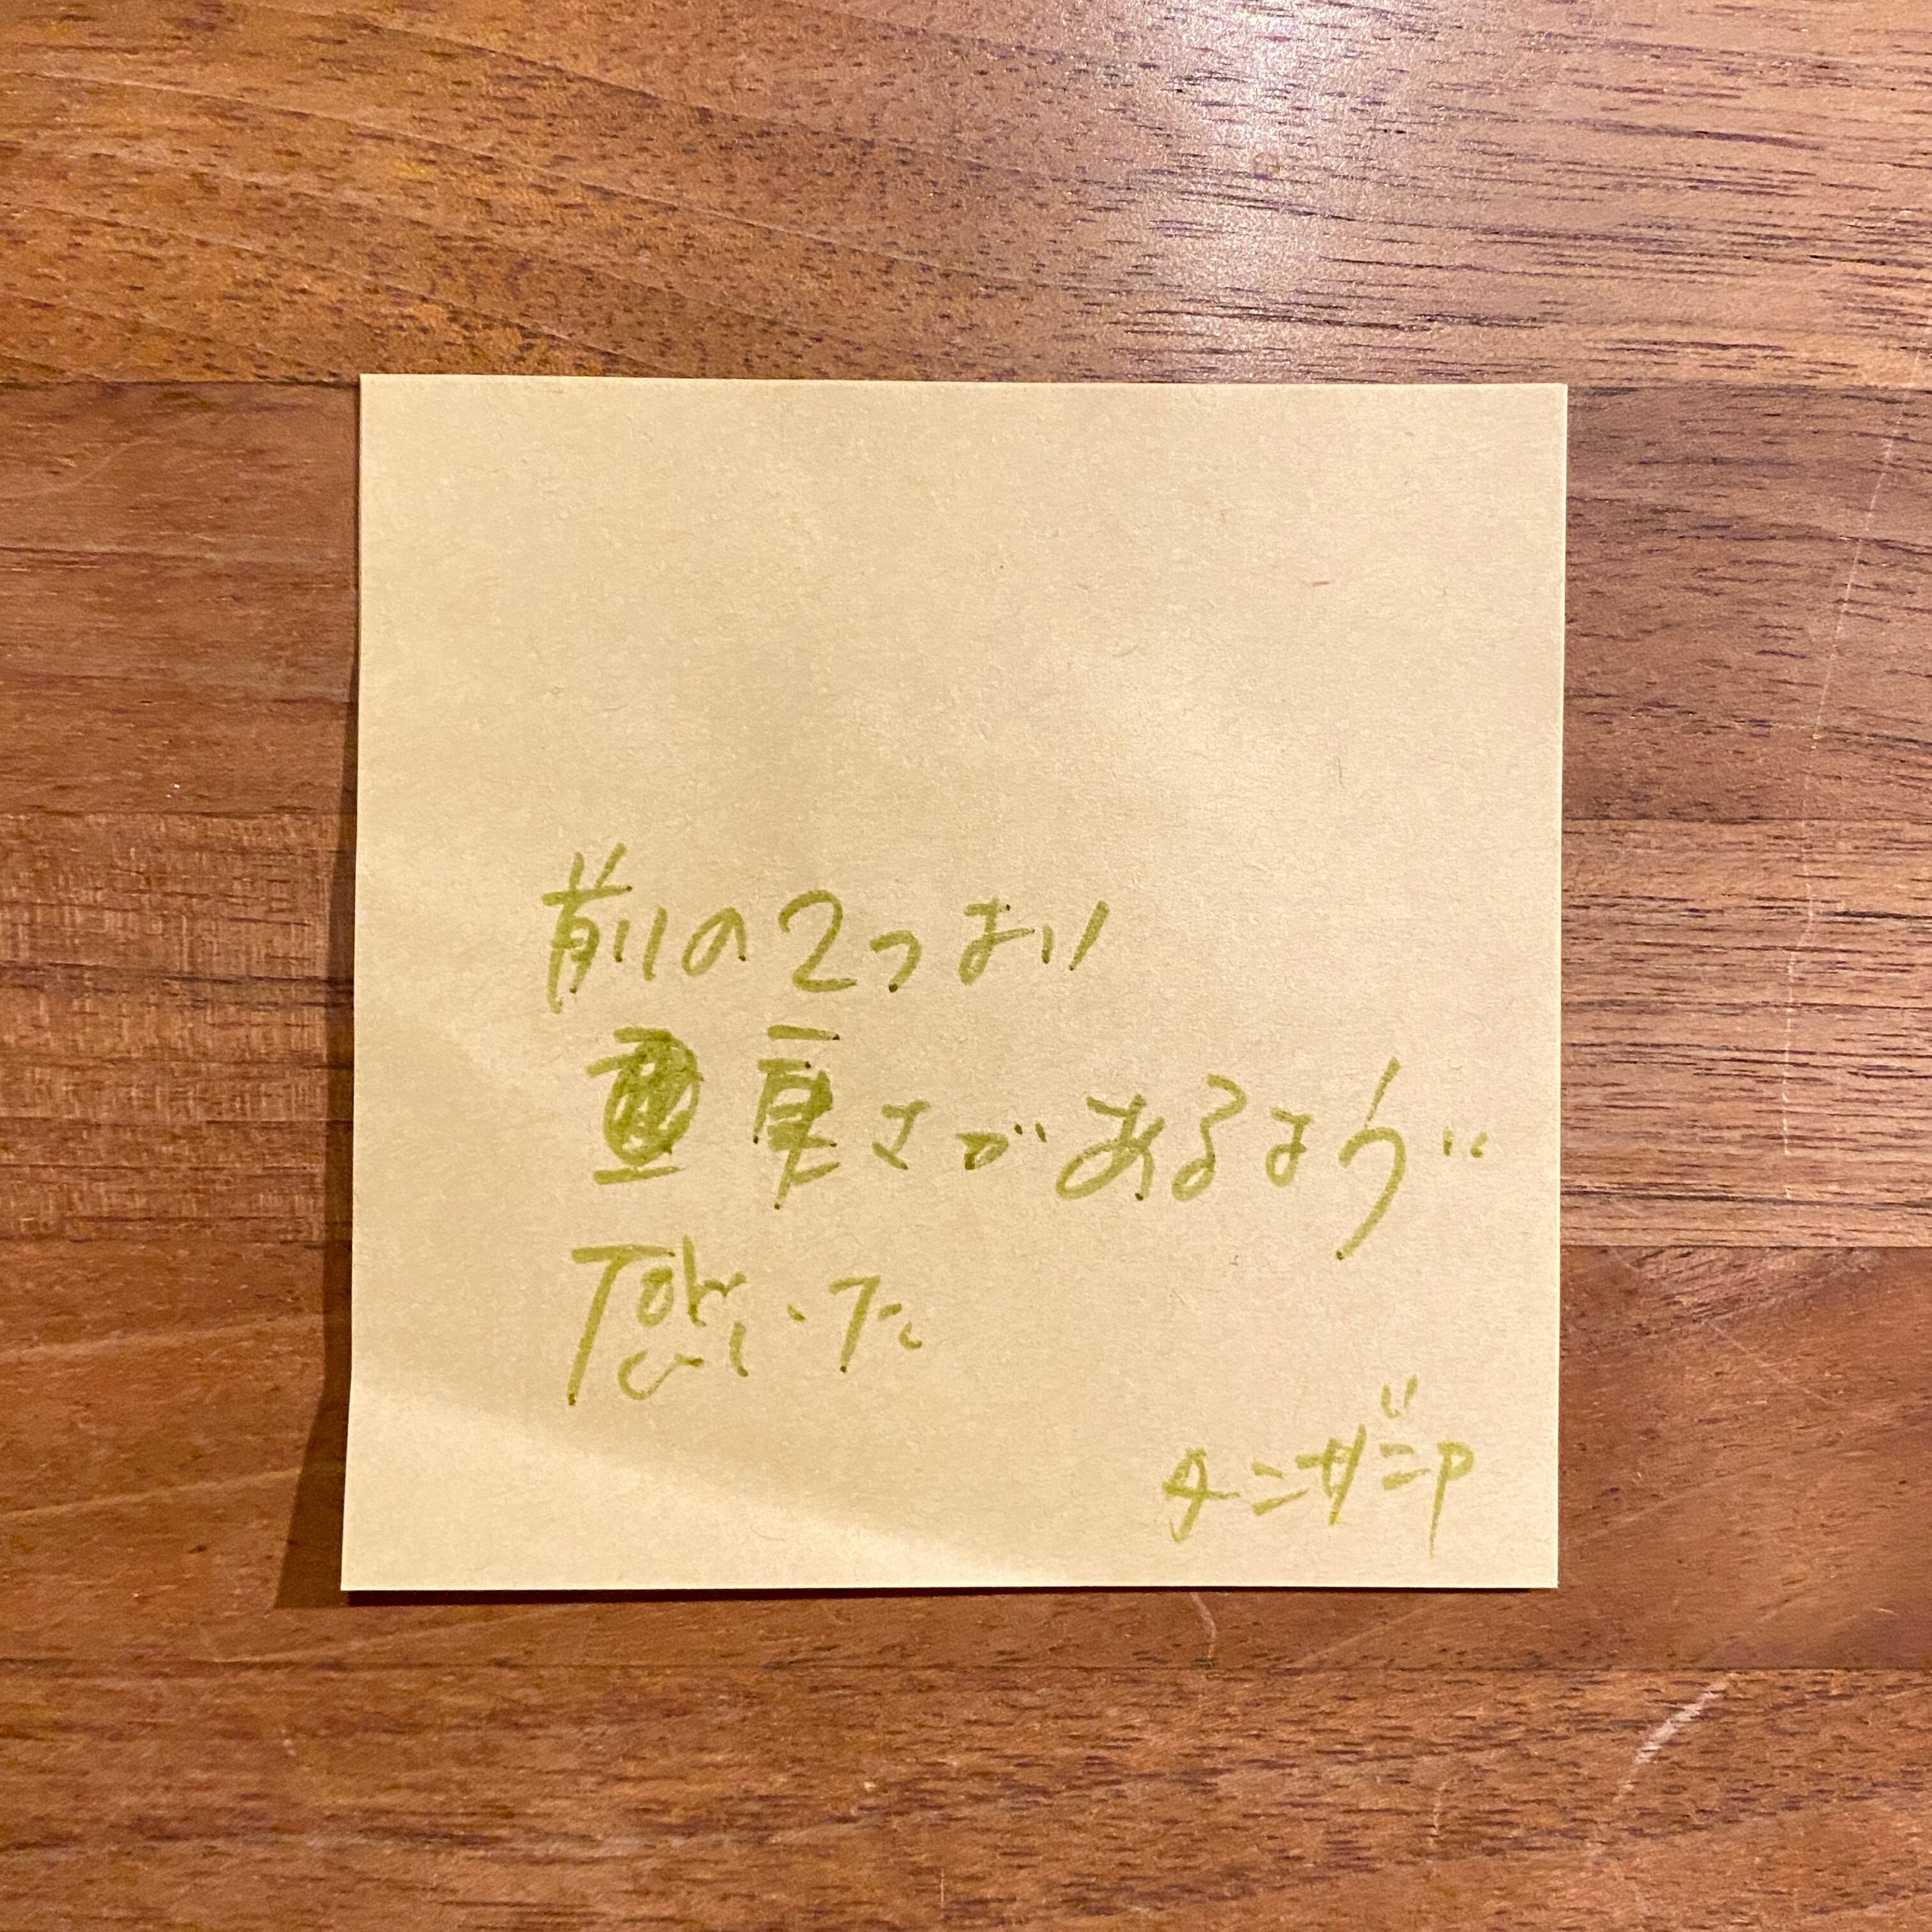 前の2つより
重厚さがあるよう
感じた
タンザニア